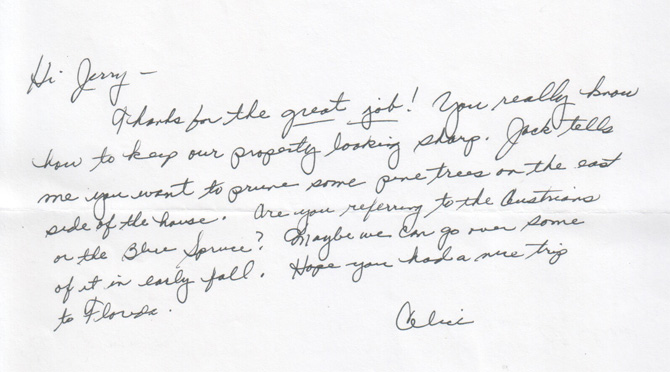 Hi Jerry –
Thanks for the great job! You really know
how to keep our property looking sharp. Jack tells
me you want to prune some pine trees on the east
side of the house. Are you referring to the Austrians
or the Blue Spruce? Maybe we can go over some
of it in early fall. Hope you had a nice trip
to Florida.